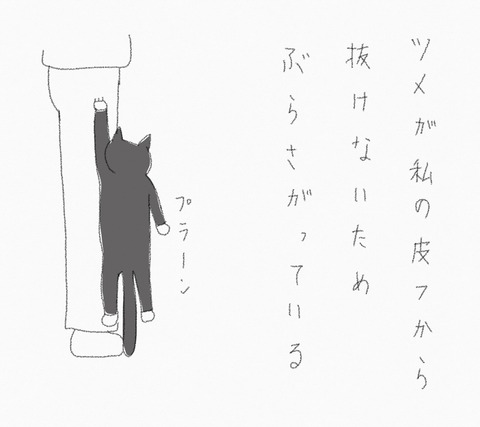 ツメが私の皮フから
抜けないため
ぶらさがっている
プラーン